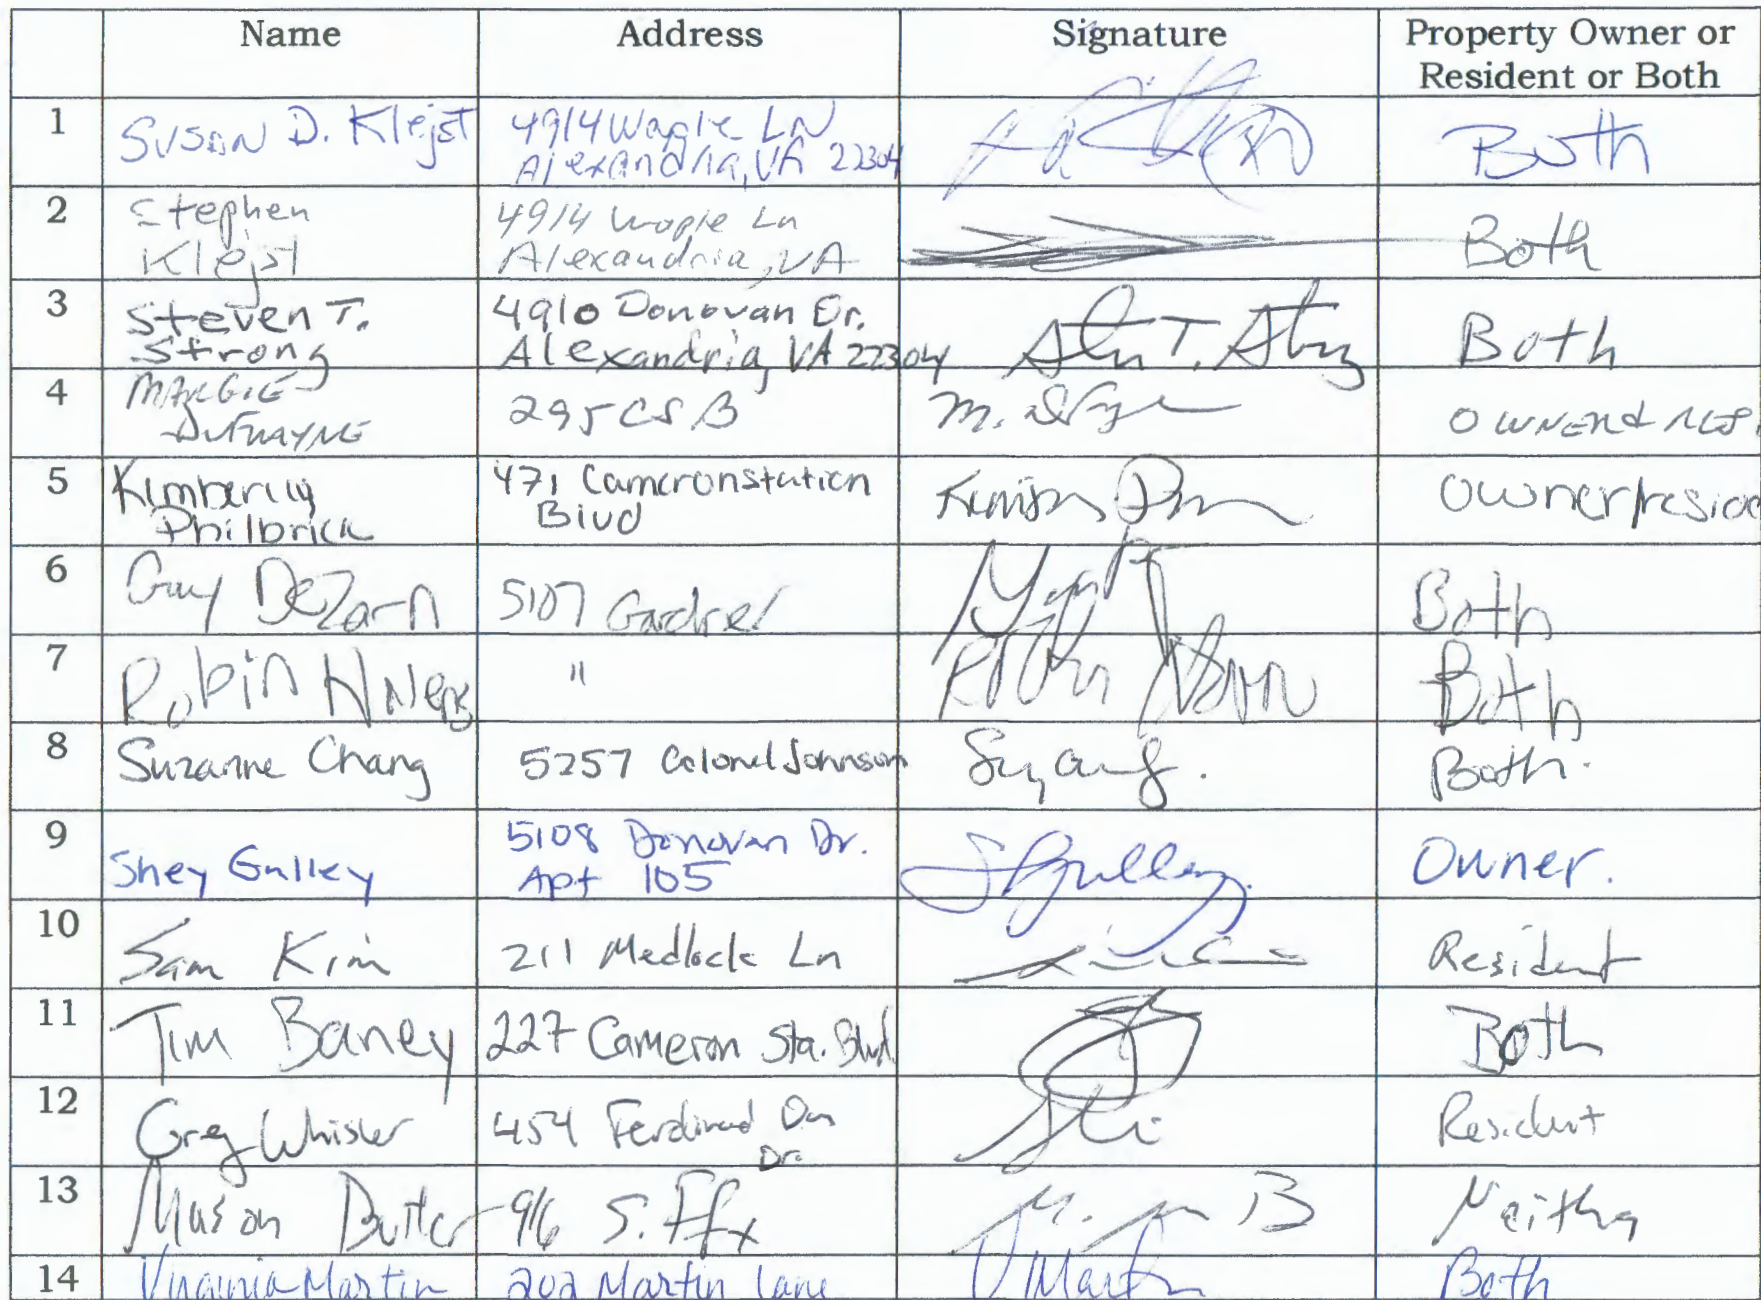 Name Address Signature Property Owner or
Resident or Both
1 Susan D. Klejst 4914 Waple Ln
Alexandria, VA 22304 Both
2 Stephen
Klejst 4914 Waple Ln
Alexandria, VA Both
3 Steven T.
Strong 4910 Donovan Dr.
Alexandria, VA 22304 Both
4 Margie
295 CSB M. Owner & res.
5 Kimberly
Philbrick 471 Cameronstation
Blvd Owner/resid
6 Guy DeZarn 5107 Gardner Both
7 Robin " Both
8 Suzanne Chang 5257 Colonel Johnson Both.
9 Shey Gulley 5108 Donovan Dr.
Apt 105 SGulley Owner.
10 Sam Kim 211 Medlock Ln Resident
11 Tim Baney 227 Cameron Sta. Blvd. Both
12 Greg Whisler 454 Ferdinand Day
Dr. Resident
13 Mason Butler 916 S. Ffx M. B Neither
14 Virginia Martin 202 Martin Lane V Martin Both